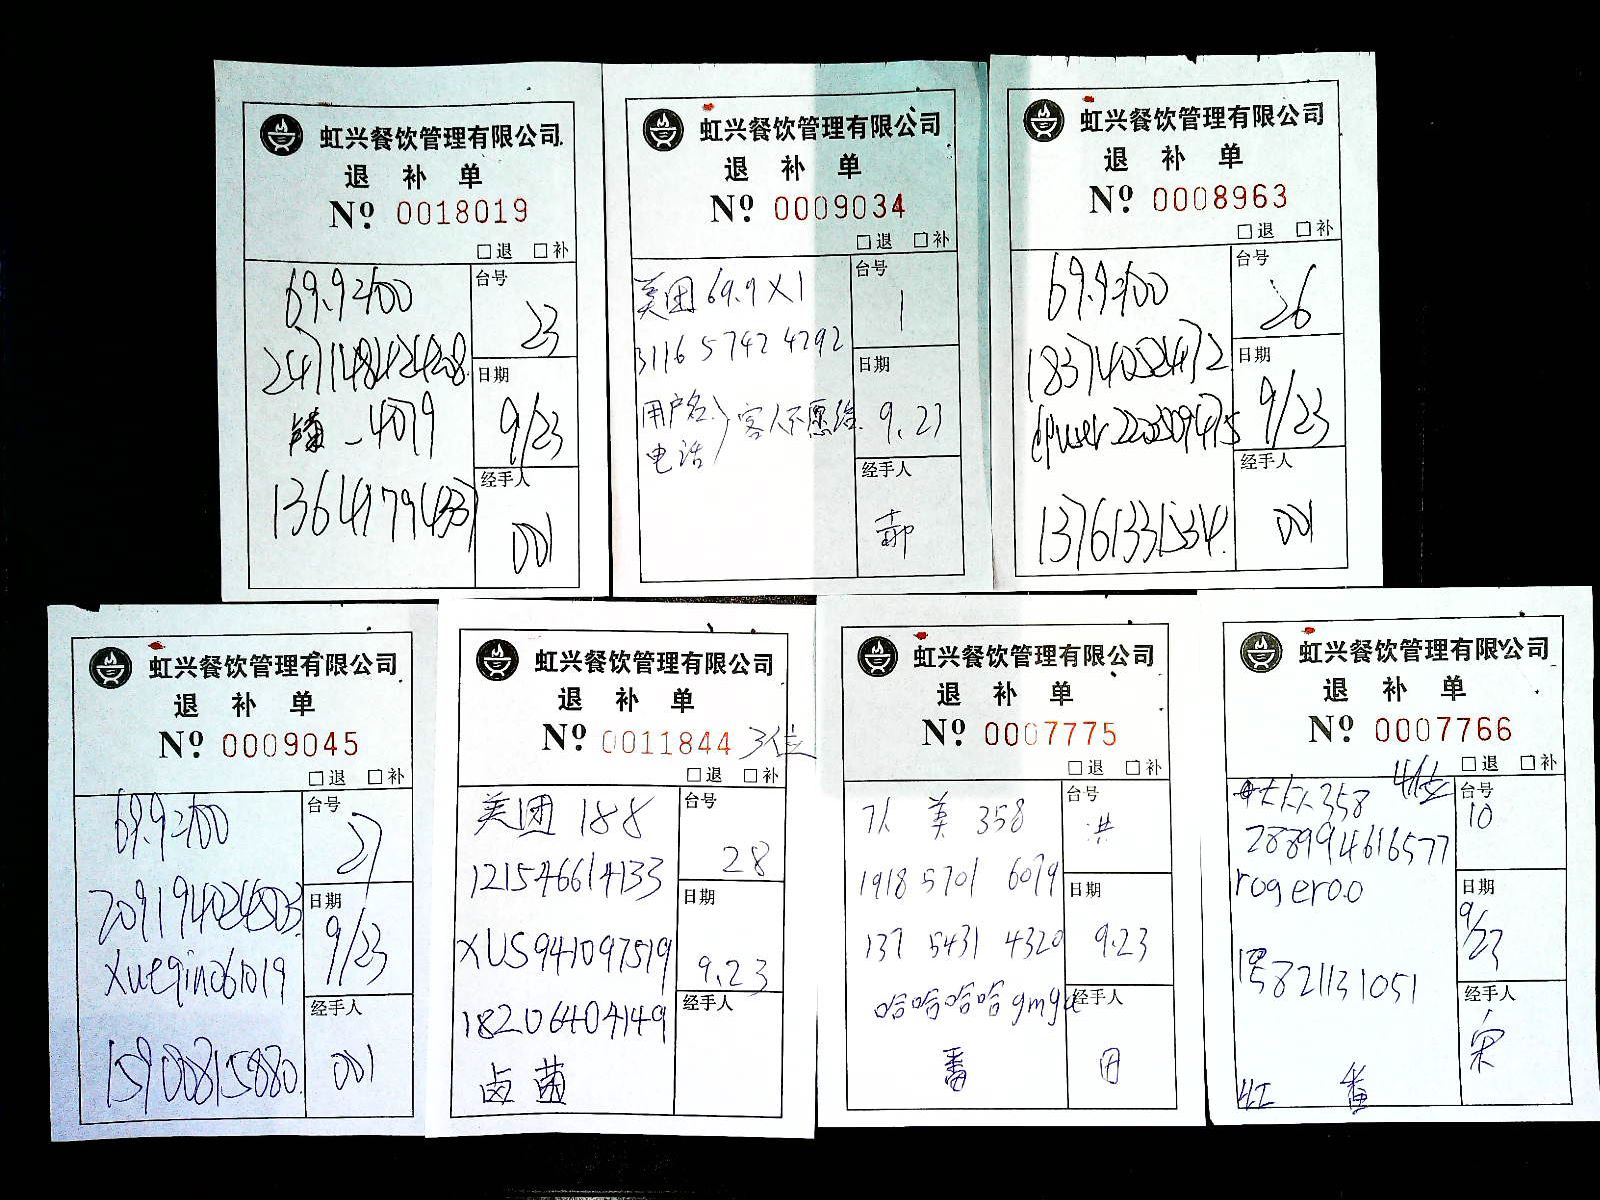 虹兴餐饮管理有限公司
退 补 单
Nº 0018019
□退 □补
69.9=100
台号
23
日期
9/23
4079
经手人
001
虹兴餐饮管理有限公司
退 补 单
Nº 0009034
□退 □补
美团 69.9X1
台号
1
3116 5742 4292
日期
用户名
电话
客人不愿给
9.23
经手人
郝
虹兴餐饮管理有限公司
退 补 单
Nº 0008963
□退 □补
台号
26
日期
9/23
经手人
13761331534
001
虹兴餐饮管理有限公司
退 补 单
Nº 0009045
□退 □补
69.9=100
台号
27
日期
9/23
xueqin061019
经手人
15900815880
001
虹兴餐饮管理有限公司
退 补 单
Nº 0011844 3位
□退 □补
美团 188
台号
28
121546614133
日期
XUS941097519
9.23
经手人
18206404149
卤 菌
虹兴餐饮管理有限公司
退 补 单
Nº 0007775
□退 □补
美 358
台号
1918 5701 6079
日期
137 5431 4320
9.23
哈哈哈哈gmga
经手人
番
田
虹兴餐饮管理有限公司
退 补 单
Nº 0007766
□退 □补
358 4位
台号
10
288994616577
rogeroo
日期
9/23
821131051
经手人
宋
红 番